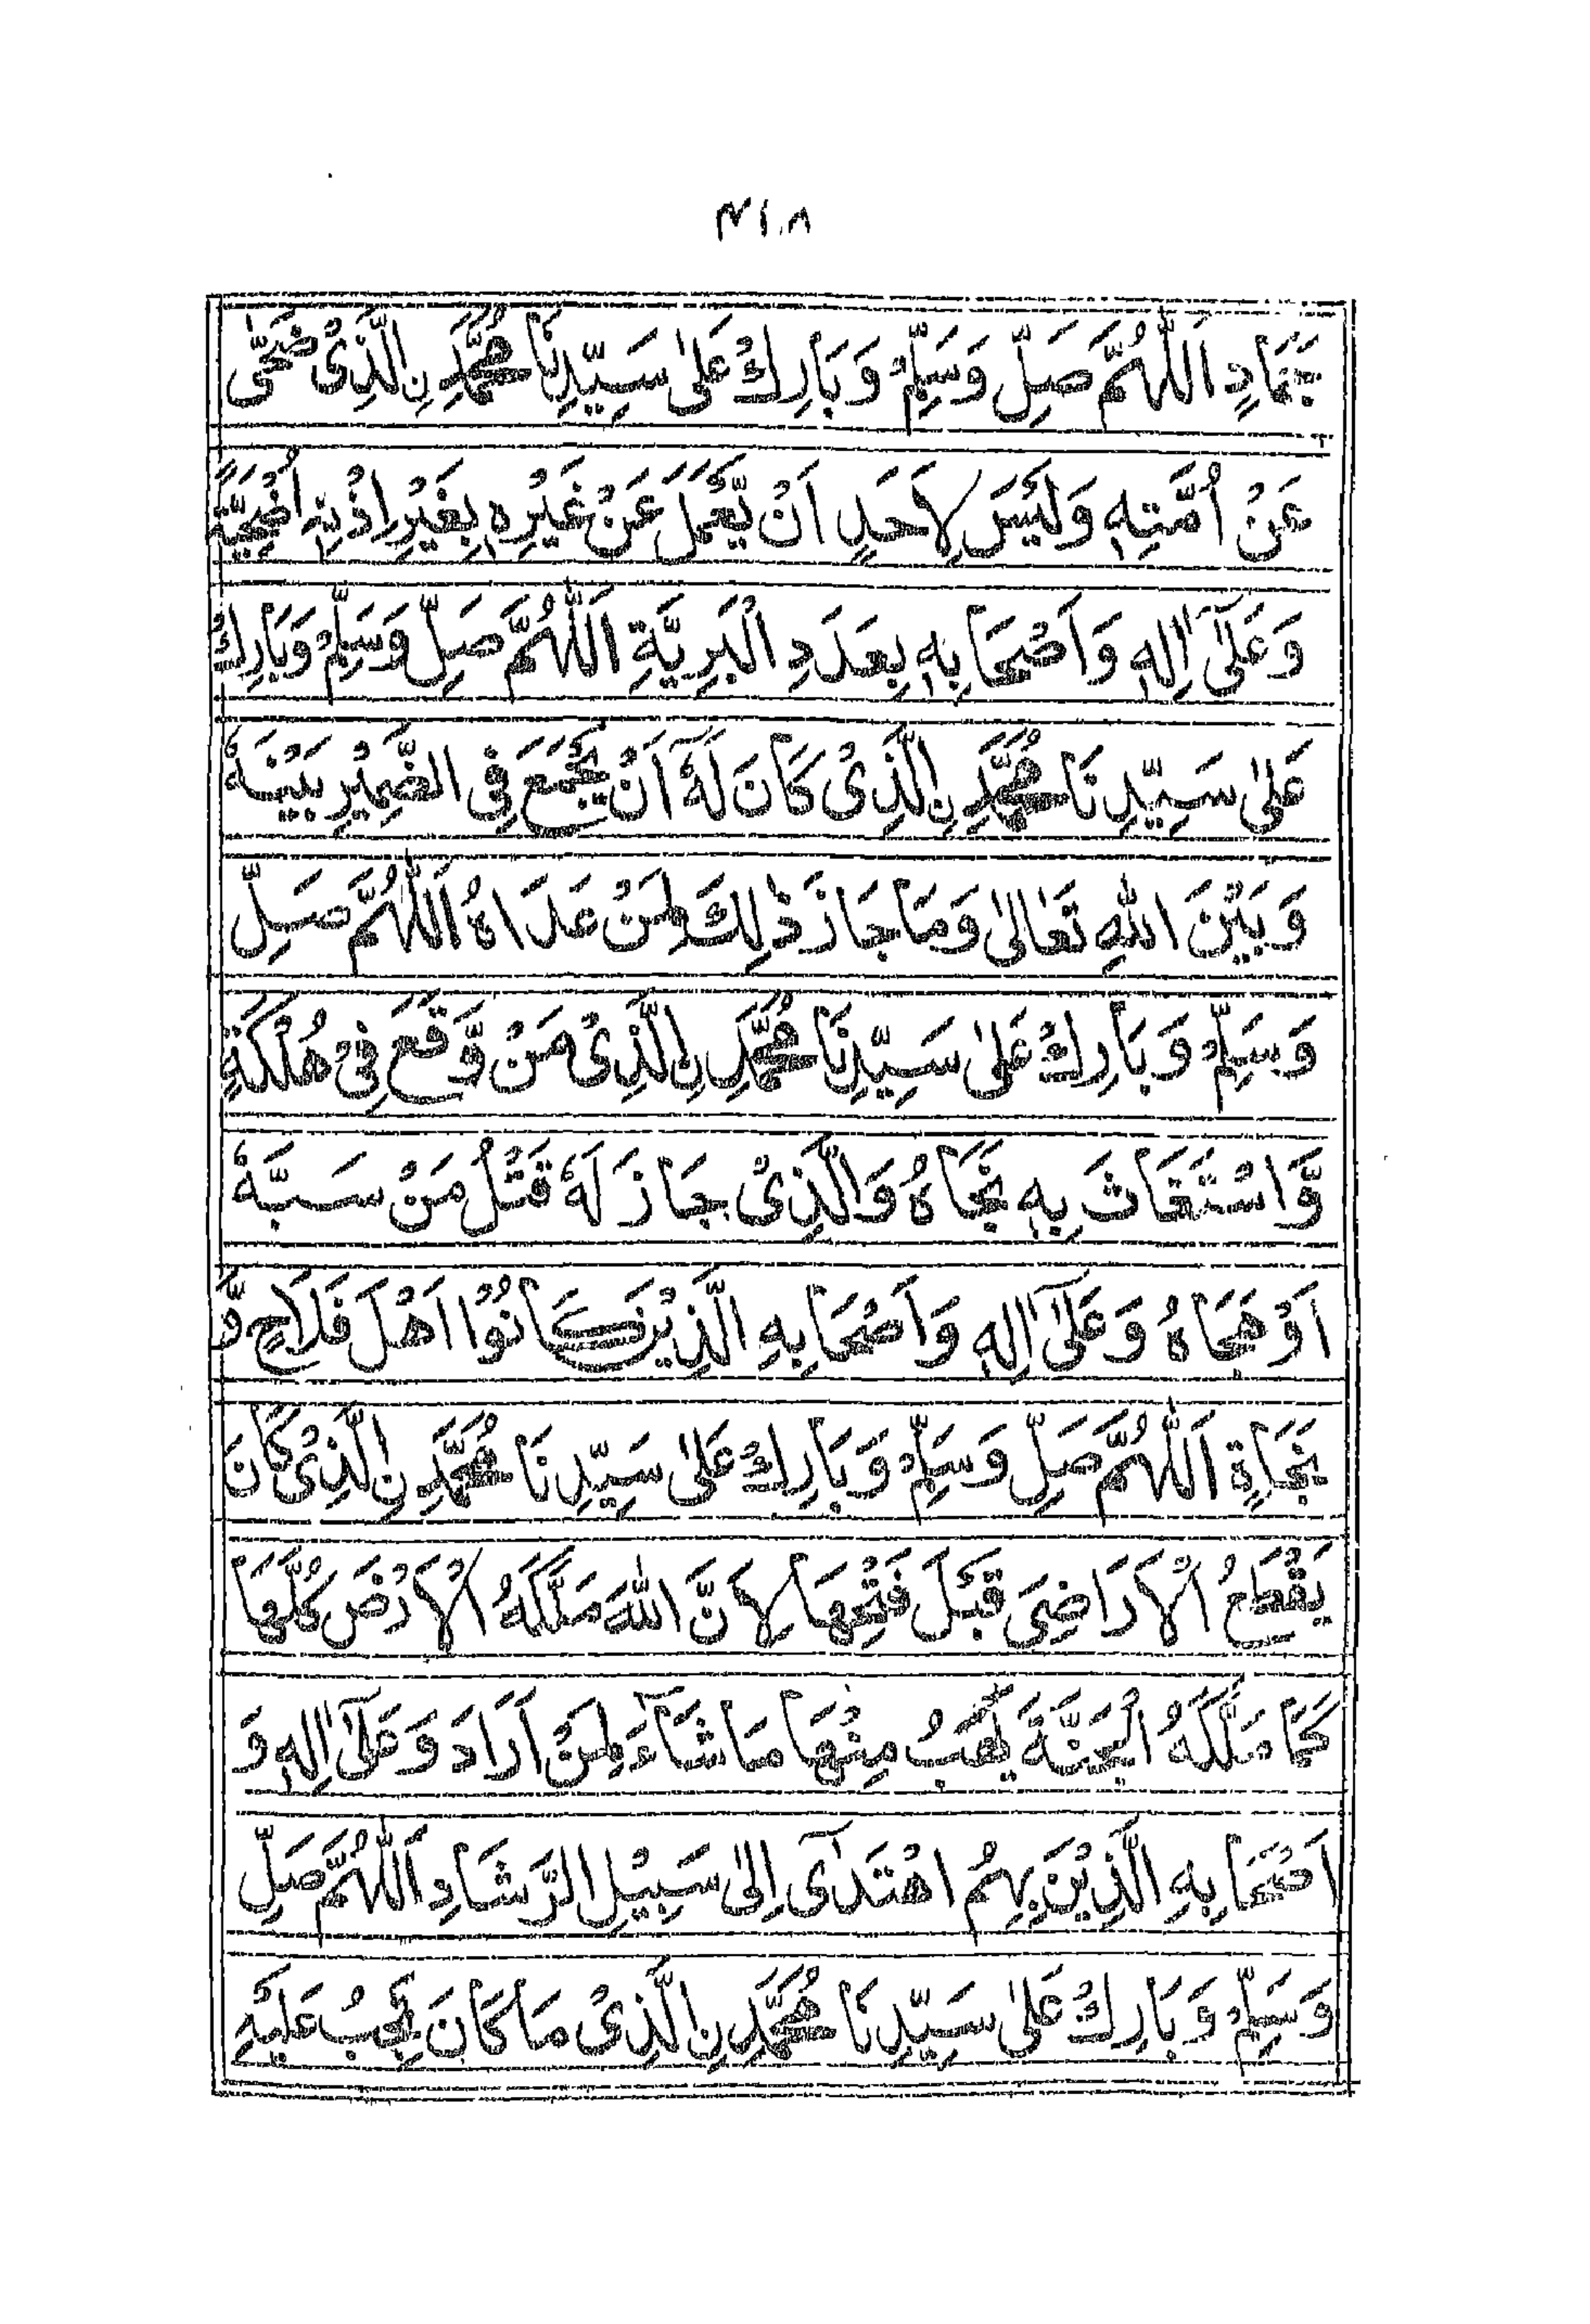 ۲۱۸
جَمَادٍ اَللّٰهُمَّ صَلِّ وَسَلِّمْ وَبَارِكْ عَلٰى سَيِّدِنَا مُحَمَّدِ نِ الَّذِىْ ضَحّٰى
عَنْ اُمَّتِهٖ وَلَيْسَ لِاَحَدٍ اَنْ يَّعْمَلَ عَنْ غَيْرِهٖ بِغَيْرِ اِذْنِهٖ اُضْحِيَّةً
وَعَلٰٓى اٰلِهٖ وَاَصْحَابِهٖ بِعَدَدِ الْبَرِيَّةِ اَللّٰهُمَّ صَلِّ وَسَلِّمْ وَبَارِكْ
عَلٰى سَيِّدِنَا مُحَمَّدِ نِ الَّذِىْ كَانَ لَهٗٓ اَنْ يَّجْمَعَ فِى الضَّمِيْرِ بَيْنَهٗ
وَبَيْنَ اللّٰهِ تَعَالٰى وَمَا جَازَ ذٰلِكَ لِمَنْ عَدَاهُ اَللّٰهُمَّ صَلِّ
وَسَلِّمْ وَبَارِكْ عَلٰى سَيِّدِنَا مُحَمَّدِ نِ الَّذِىْ مَنْ وَّقَعَ فِىْ هُلْكَةٍ
وَّاسْتَغَاثَ بِهٖ نَجَاهُ وَالَّذِىْ جَازَ لَهٗ قَتْلُ مَنْ سَبَّهٗ
اَوْ هَجَاهُ وَعَلٰٓى اٰلِهٖ وَاَصْحَابِهِ الَّذِيْنَ كَانُوْا اَهْلَ فَلَاحٍ وَّ
نَجَاةٍ اَللّٰهُمَّ صَلِّ وَسَلِّمْ وَبَارِكْ عَلٰى سَيِّدِنَا مُحَمَّدِ نِ الَّذِىْ كَانَ
يَقْطَعُ الْاَرَاضِىَ قَبْلَ فَتْحِهَا لِاَنَّ اللّٰهَ مَلَّكَهُ الْاَرْضَ كُلَّهَا
كَمَا مَلَّكَهُ الْجَنَّةَ يَهَبُ مِنْهَا مَا شَآءَ لِمَنْ اَرَادَ وَعَلٰٓى اٰلِهٖ وَ
اَصْحَابِهِ الَّذِيْنَ بِهِمُ اهْتَدٰٓى اِلٰى سَبِيْلِ الرَّشَادِ اَللّٰهُمَّ صَلِّ
وَسَلِّمْ وَبَارِكْ عَلٰى سَيِّدِنَا مُحَمَّدِ نِ الَّذِىْ مَا كَانَ يَجِبُ عَلَيْهِ